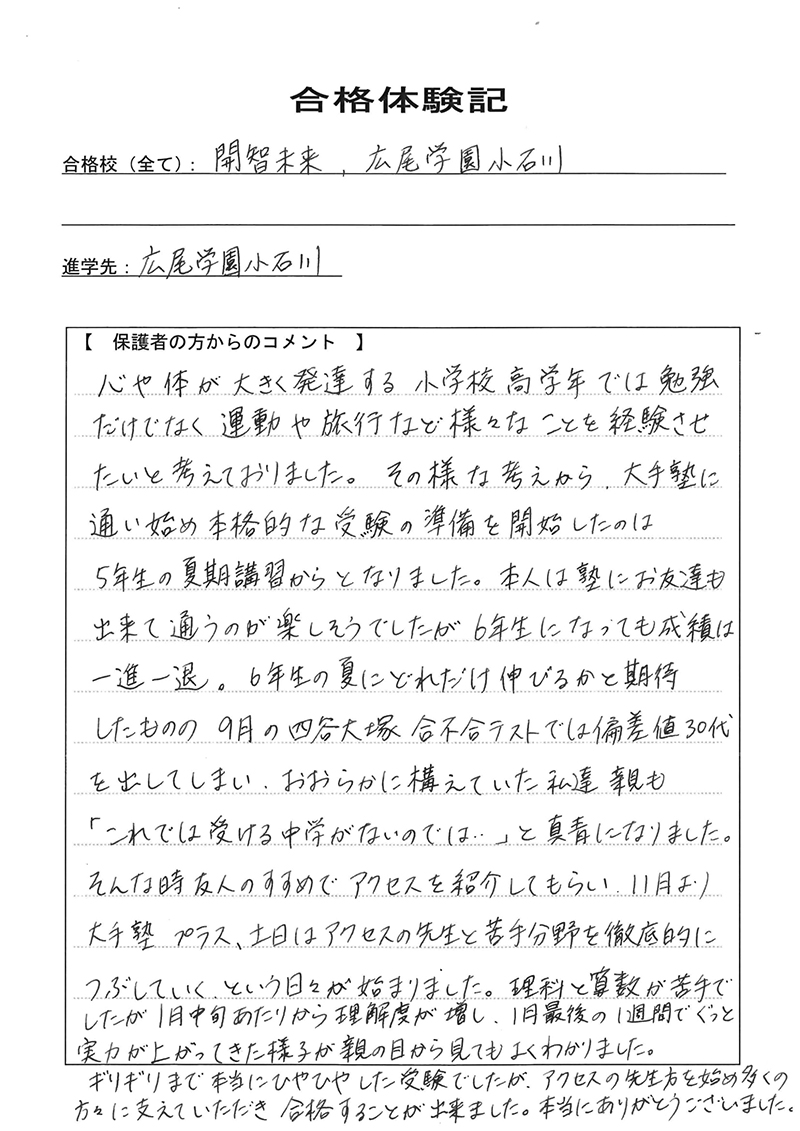 合格体験記
合格校（全て）: 開智未来 , 広尾学園小石川
進学先: 広尾学園小石川
【 保護者の方からのコメント 】
心や体が大きく発達する小学校高学年では勉強
だけでなく運動や旅行など様々なことを経験させ
たいと考えておりました。その様な考えから、大手塾に
通い始め本格的な受験の準備を開始したのは
5年生の夏期講習からとなりました。本人は塾にお友達も
出来て通うのが楽しそうでしたが6年生になっても成績は
一進一退。6年生の夏にどれだけ伸びるかと期待
したものの9月の四谷大塚合不合テストでは偏差値30代
を出してしまい、おおらかに構えていた私達親も
「これでは受ける中学がないのでは‥」と真青になりました。
そんな時友人のすすめでアクセスを紹介してもらい、11月より
大手塾プラス、土日はアクセスの先生と苦手分野を徹底的に
つぶしていくという日々が始まりました。理科と算数が苦手で
したが1月中旬あたりから理解度が増し、1月最後の1週間でぐっと
実力が上がってきた様子が親の目から見てもよくわかりました。
ギリギリまで本当にひやひやした受験でしたが、アクセスの先生方を始め多くの
方々に支えていただき合格することが出来ました。本当にありがとうございました。